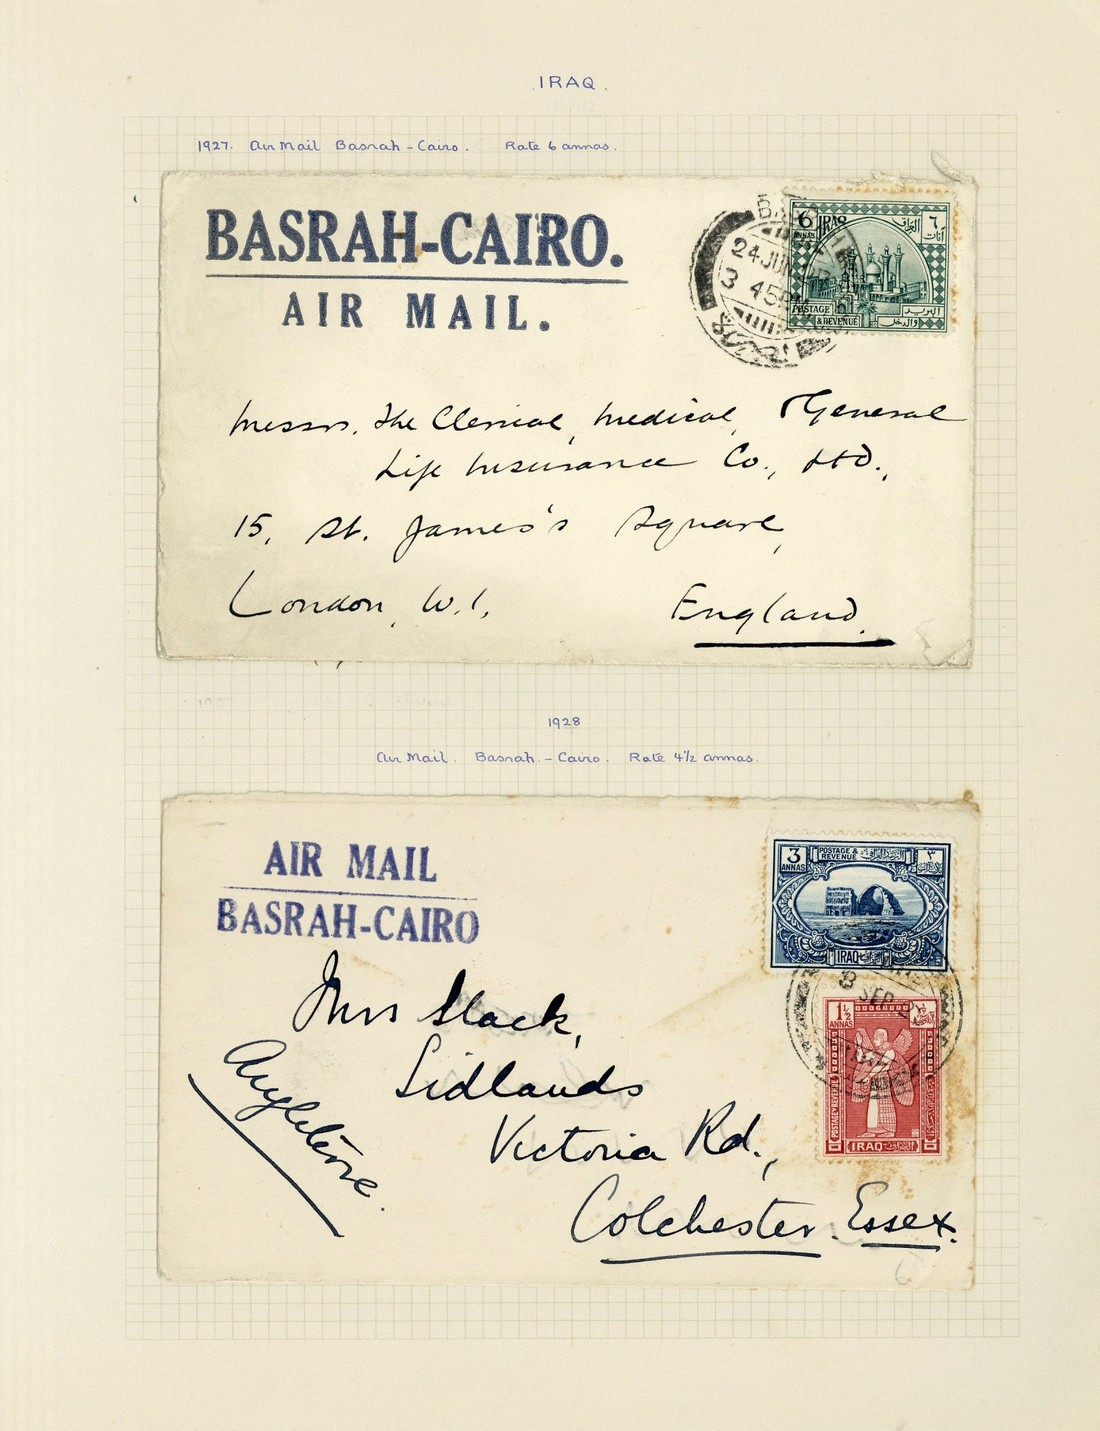 IRAQ.
1927. Air Mail Basrah - Cairo. Rate 6 annas.
BASRAH-CAIRO.
AIR MAIL.
6 IRAQ العراق ٦
ANNAS انات
24 JU
3 45 PM
POSTAGE & REVENUE البريد والدخل
Messrs. The Clerical, Medical, & General
Life Insurance Co., Ltd.,
15, St. James's Square,
London, W.1,
England.
1928
Air Mail. Basrah. - Cairo. Rate 4½ annas.
AIR MAIL
BASRAH-CAIRO
3 POSTAGE & REVENUE ٣
ANNAS
IRAQ
8 SEP 2
1½
ANNAS
POSTAGE & REVENUE
IRAQ
Mrs Slack,
Sidlands
Victoria Rd.,
Colchester. Essex.
Angleterre.